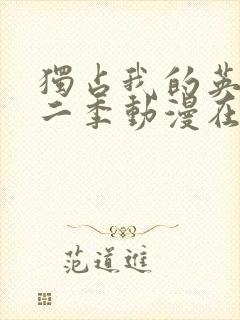 獨占我的英
二季動漫在
范道進